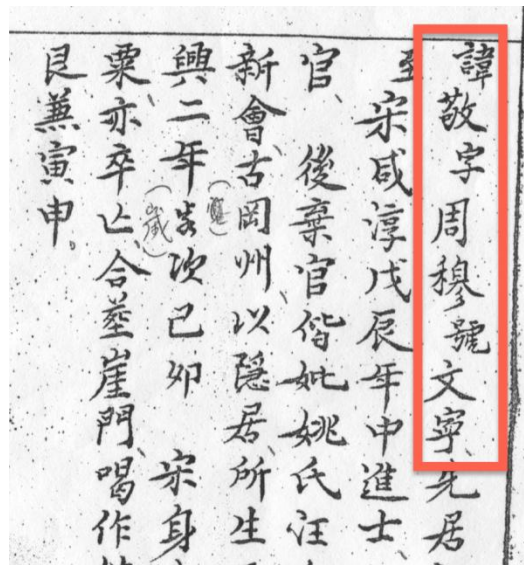 諱敬字周穆號文寧先居
至宋咸淳戊辰年中進士
官、後棄官偕妣姚氏汪
新會古岡州以隱居、所生
興二年嵗次己卯 宋身
(歲)
粟亦卒亡、合塟崖門、喝作
艮兼寅申。